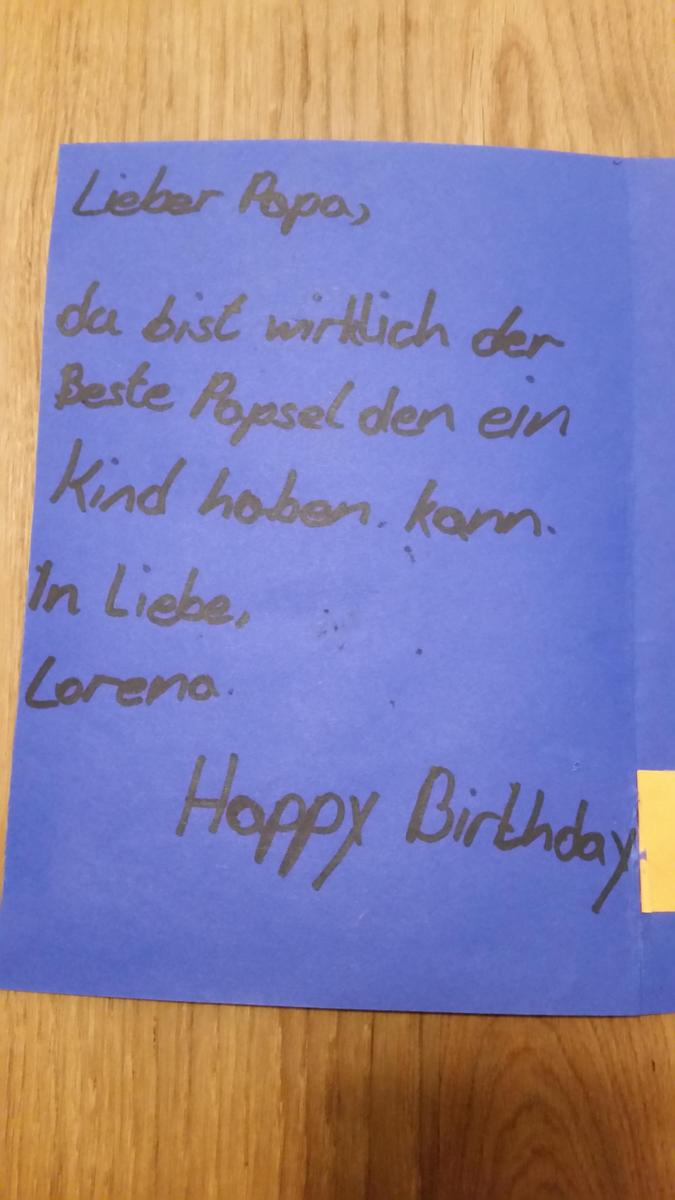 Lieber Papa,
du bist wirklich der
Beste Papsel den ein
Kind haben kann.
In Liebe,
Lorena
Happy Birthday